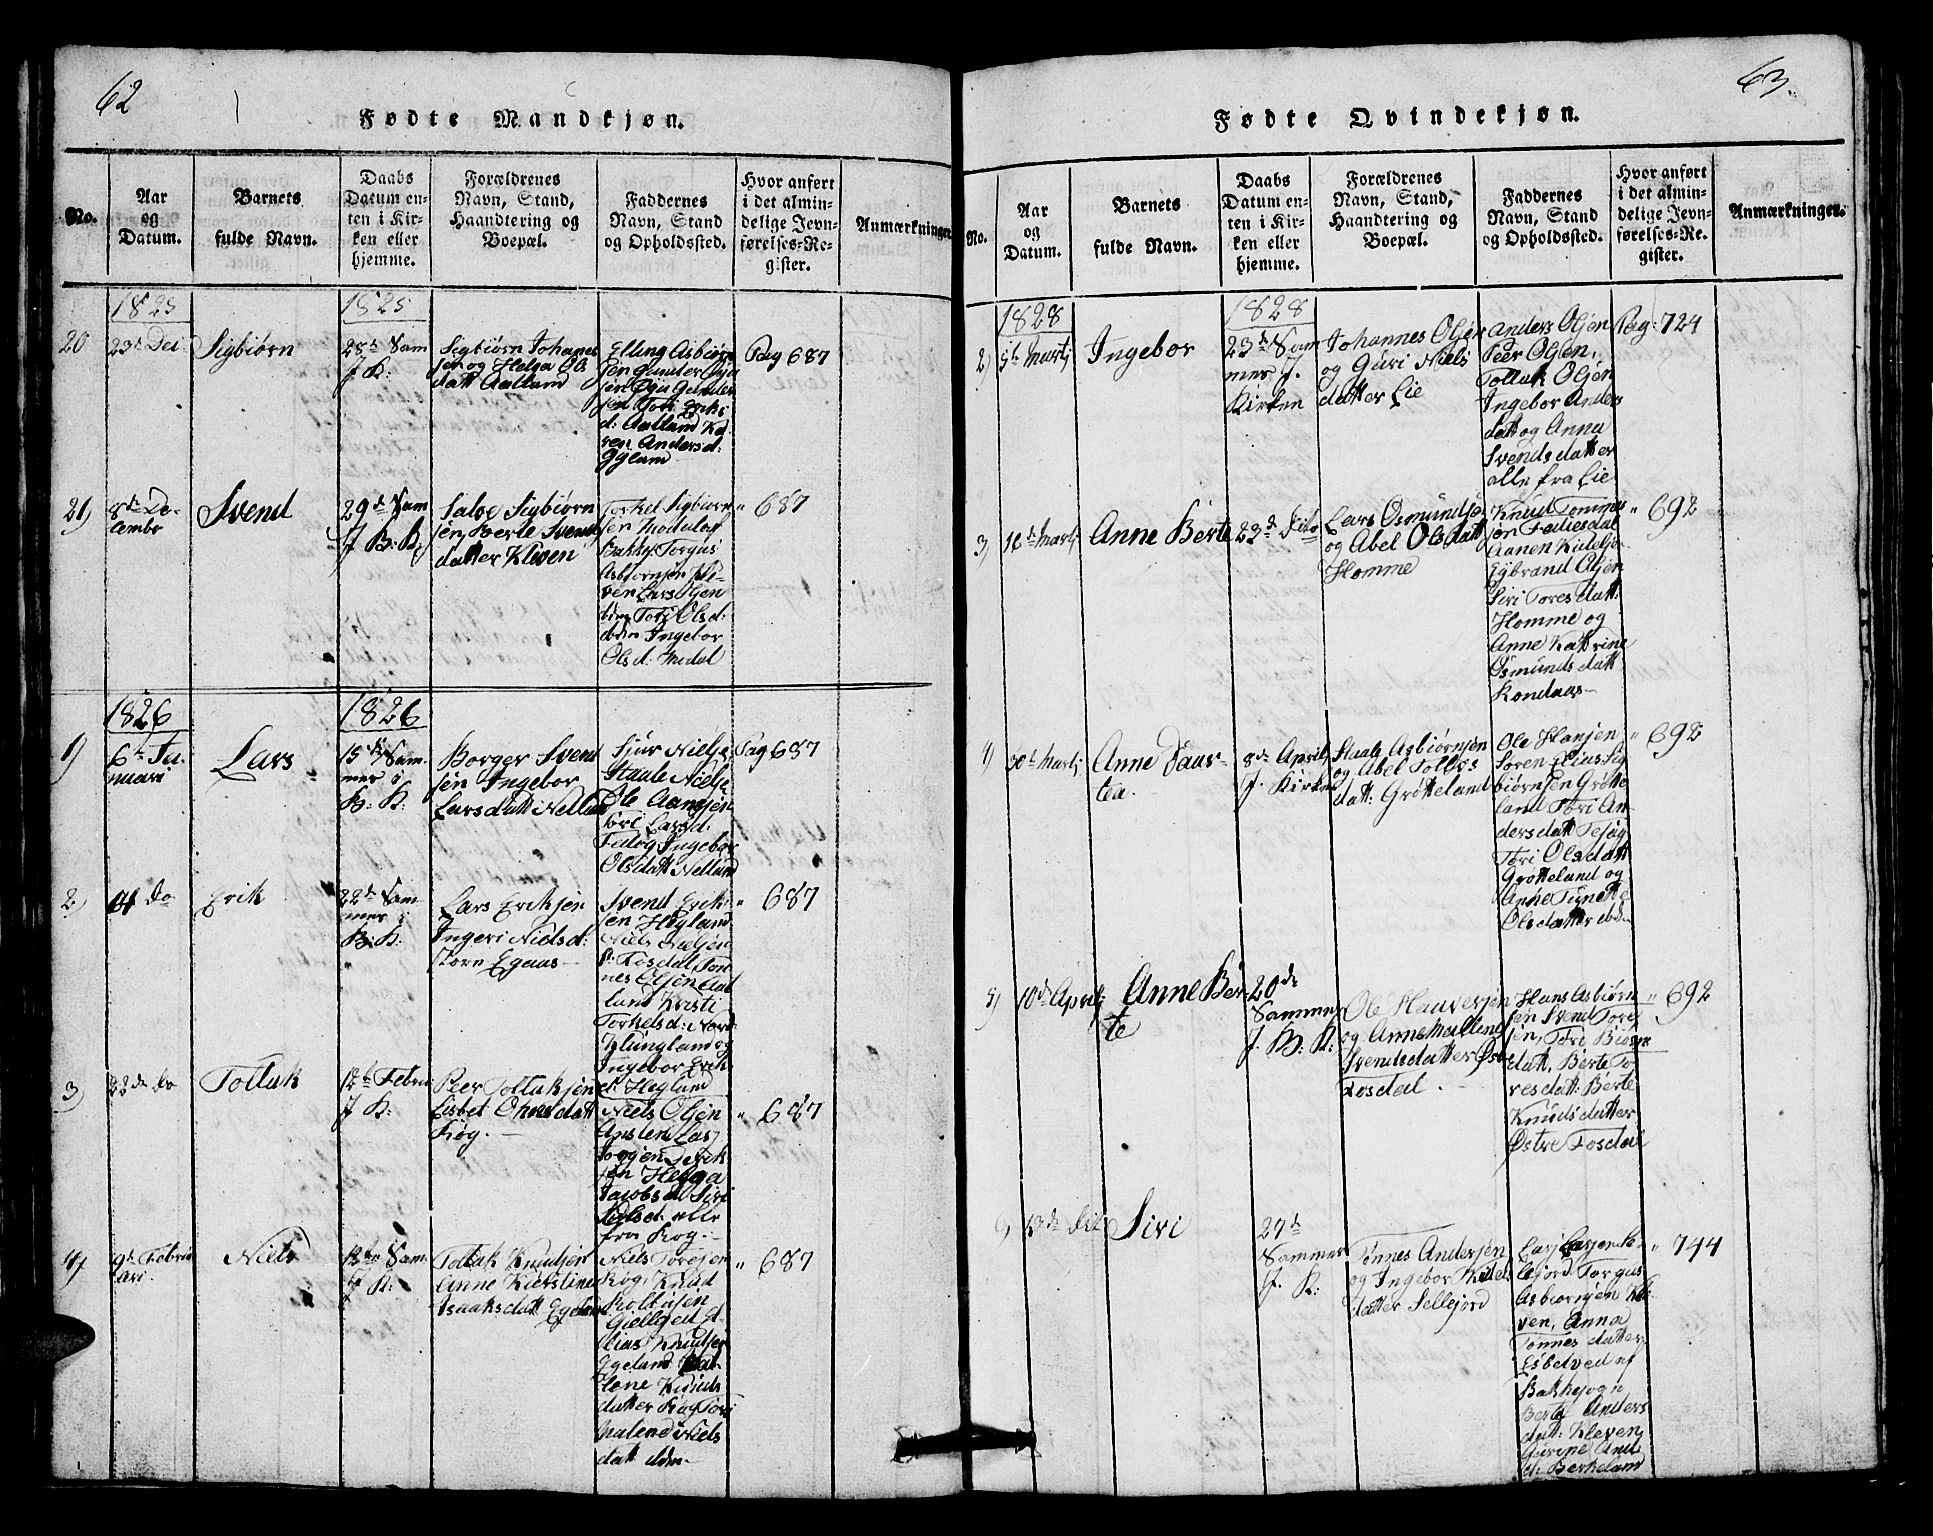 62
Fødte Mandkjøn.
No.
Aar
og
Datum.
Barnets
fulde Navn.
Daabs
Datum en-
ten i Kir-
ken eller
hjemme.
Forældrenes
Navn, Stand,
Haandtering og
Boepæl.
Faddernes
Navn, Stand
og Opholdssted.
Hvor anført
i det almin-
delige Jevn-
førelses-Re-
gister.
Anmærkninger.
1825
1825
20
23d
Sigbiørn
28de Sam
J K:
Sigbiørn Johanes
sen og Helga Ols
datt Aatland
Elling Asbiørn
sen Gunder
Gunder
sen Tori Erks
d: Aatland Ka
ren Andersd:
Pag 687
21)
8de De-
cembr
Svend
29de Sam
J B: K:
Salve Sigbiørn
sen Berte Svens
datter Kleven
Torkel Sigbiørn
sen Modalen
Bakke Torgus
Asbiørnsen Kle-
ven Lars
Tori Olsd:
Ingebor
Olsd: Medal
" 687
1826
1826
1)
6te Ja-
nuari
Lars
15de Sam-
mer i
B: K:
Borger Svend
sen Ingebor
Larsdatt Netland
Sjur Nielse
Staale Nielse
Ole Aamsen
Tori Larsd:
Ingebor
Olsdatt Netland
Pag 687
2)
14 do
Erik
22de Sam-
mer i
B: K:
Lars Eriksen
Ingeri Nielsd:
Store Egaas
Svend Erik-
sen Hegland
Niels Nielsen
Fosdal Tøn
nes Olsen Aat
land Kristi
Torkelsd: Nord
Klungland og
Ingebor Erik
d: Heglund
" 687
3)
22de do
Tollak
12te Febru
J K:
Peer Tollaksen
Lisbet Omsdatt
Røg.
Niels Olsen
Helga
Jacobsd Siri
alle
fra Røg.
" 687
4)
9de Febru
ari.
Niels
12te Sam-
J K:
Tollak Knudsen
Anne Kirstine
Isaaksdatt Egeland
Niels Toresen
Røg, Knud
Elias Knudsen
Egeland
Knuds
datter Røg Tori
Malene Niels
datt
" 687
63.
Fødte Qvindekjøn.
No.
Aar
og
Datum.
Barnets
fulde Navn.
Daabs
Datum en-
ten i Kir-
ken eller
hjemme.
Forældrenes
Navn, Stand,
Haandtering og
Boepæl.
Faddernes
Navn, Stand
og Opholdssted.
Hvor anført
i det almin-
delige Jevn-
førelses-Re-
gister.
Anmærkninger.
1828
1828
2)
5te Martj
Ingebor
23de Sam
mer J.
Kirken
Johannes Olsen
og Guri Niels
datter Lie
Anders Olsen
Peer Olsen,
Tollak Olsen
Ingebor Anders
datt og Anna
Svendsdatter
alle fra Lie
Pag: 724
3)
12te Martj
Anne Berte
23de dito
Lars Osmunds
og Abel Olsdatt
Homme
Knud Tommes
sen Fediesdal
Aanen Kittelsen
Sybrand Olsen
Siri Toresdatt:
Homme og
Anne Katrine
Osmundsdatt
Rondaas
" 692
4)
30te Martj
Anne Daar-
tea.
8de Aprilj
J. Kirken
Staale Asbiørnsen
og Abel Tolles
datt: Grøtteland
Ole Hansen
Soren Elias Sig
biørnsen Grøtte
land Tori An-
dersdatt
Tori Olsdatt
Grøtteland og
Anne Tignette
Olsdatter ibdn
" 692
5)
10de Aprilj
Anne Ber
te
20de
Sammer
J. B: K:
Ole Haaversen
og Anne Mallene
Svendsdatter Øst
Fosdal.
Hans Asbiørn
sen Svend Tore
sen, Tori Biørns
datt, Berte To-
resdatt: Berte
Knudsdatter
Østre Fosdal
" 692
13de
Siri
27de
Sammer
J. K:
Tønnes Andersen
og Ingebor Kitels
datter Sellejord
Lars Larsen Se-
lejord Torgus
Asbiørnsen Kle
ven, Anna
Tønnesdatter
Bakkesogn
Berte Anders
datt: Kleven
Gurine And
d: Birkeland
" 744